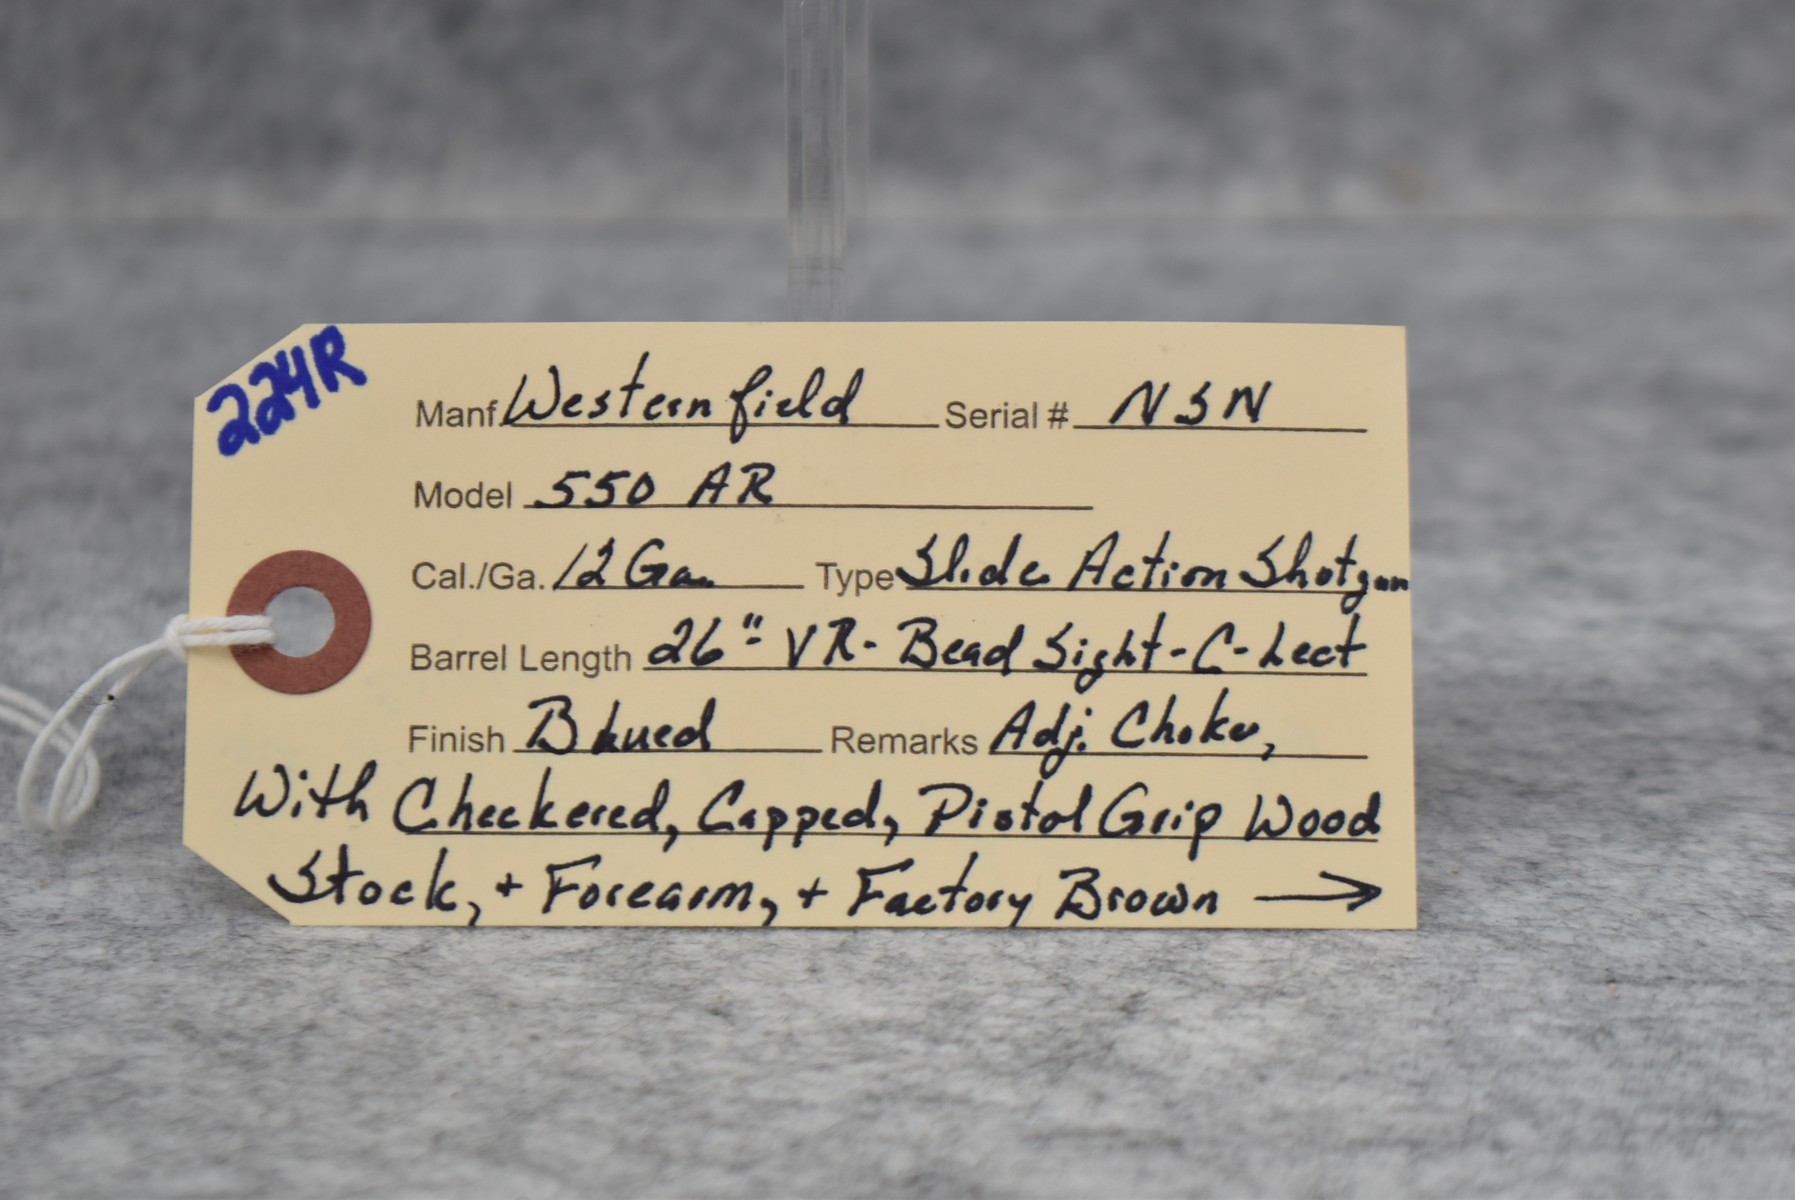 224R
Manf. Westernfield Serial # NSN
Model 550 AR
Cal./Ga. 12 Ga. Type Slide Action Shotgun
Barrel Length 26"- VR- Bead Sight-C-Lect
Finish Blued Remarks Adj. Choke,
With Checkered, Capped, Pistol Grip Wood
Stock, + Forearm, + Factory Brown →